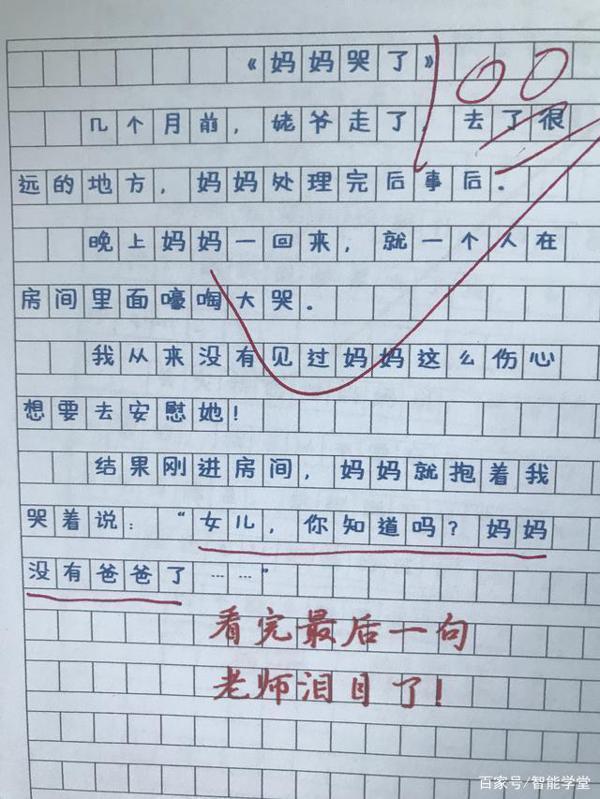 《妈妈哭了》 100
几个月前，姥爷走了，去了很
远的地方，妈妈处理完后事后.
晚上妈妈一回来，就一个人在
房间里面嚎啕大哭.
我从来没有见过妈妈这么伤心
想要去安慰她！
结果刚进房间，妈妈就抱着我
哭着说：“女儿，你知道吗？妈妈
没有爸爸了……”
看完最后一句
老师泪目了！
百家号/智能学堂